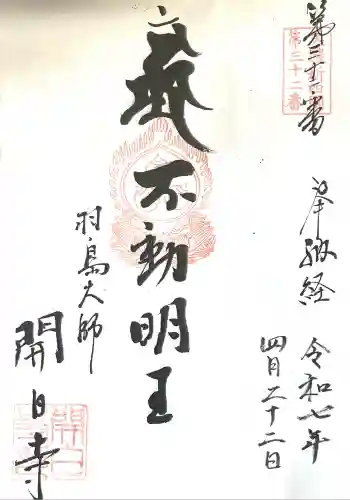 第三十二番
第三十二番
奉納経
令和七年
四月二十二日
不動明王
羽島大師
開白寺